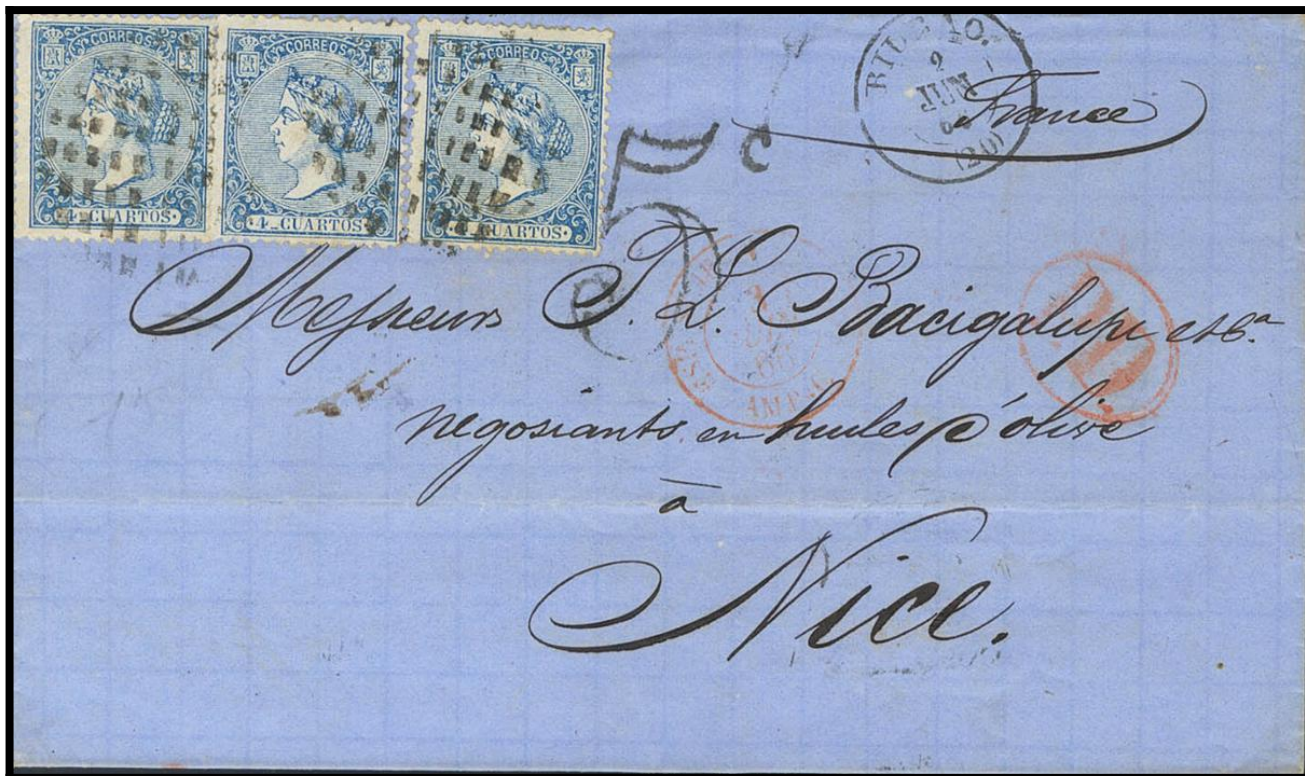 Y CORREOS
Y CORREOS
Y CORREOS
4 CUARTOS
4 CUARTOS
4 CUARTOS
2
JUN
(20)
France
PD
Messieurs T. L. Bacigalupi et Cª
negosiants en huiles d'olive
à
Nice.